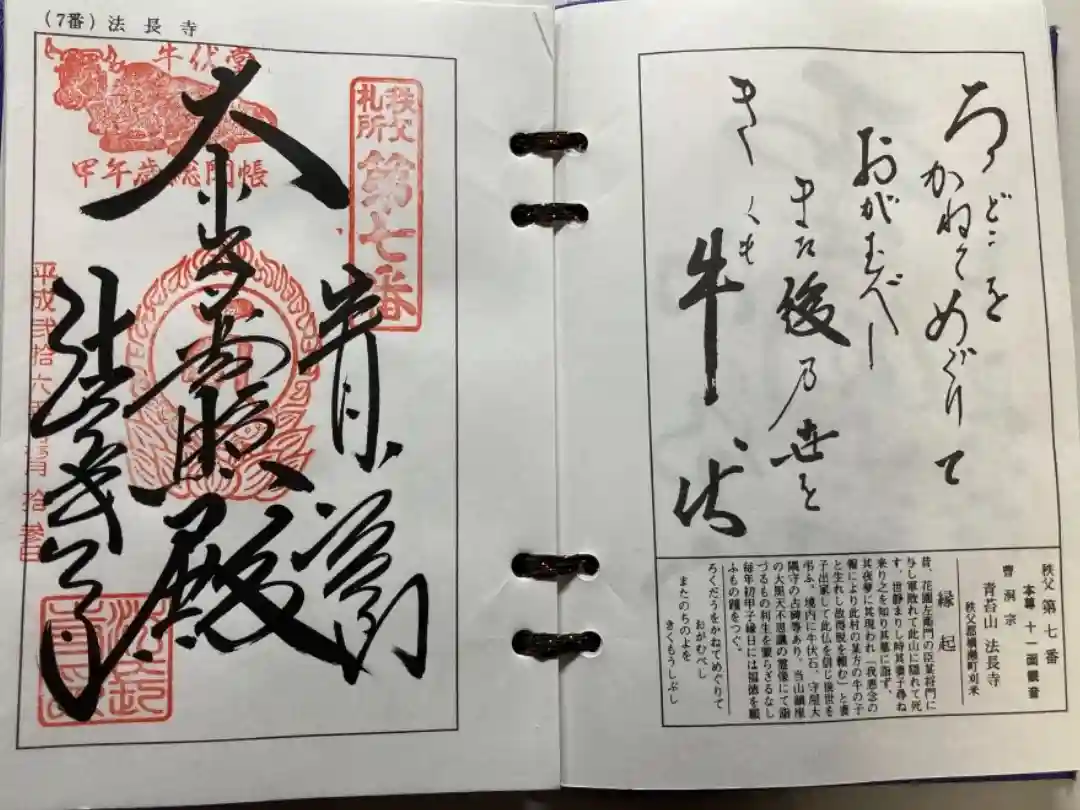 (7番)法長寺
牛伏堂
甲午歳総開帳
秩父
札所
第七番
奉拝
大悲殿
法長寺
平成弐拾六年
拾参日
ろくどうを
かねてめぐりて
おがむべし
また後乃世を
きくも
牛伏
秩父第七番
本尊 十一面観音
曹洞宗
青苔山 法長寺
秩父郡横瀬町刈米
縁起
昔、花園左衛門の臣某将門に
与し軍敗れて此山に隠れて死
す。世静まりし時其妻子尋ね
来り之を知り其墓に詣ず。
其夜夢に其現われ「我悪念の
報により此村の某方の牛の子
と生れし故得脱を頼む」と妻
子出家して此仏を信じ後世も
弔ふ。境内に牛伏石、守屋大
隅守の古碑等あり。当山鎮座
の大黒天不思議の霊像にて詣
づるもの利生を蒙らざるなし
毎年初甲子縁日には福徳を願
ふもの踵をつぐ。
ろくだうをかねてめぐりて
おがむべし
またのちのよを
きくもうしぶし